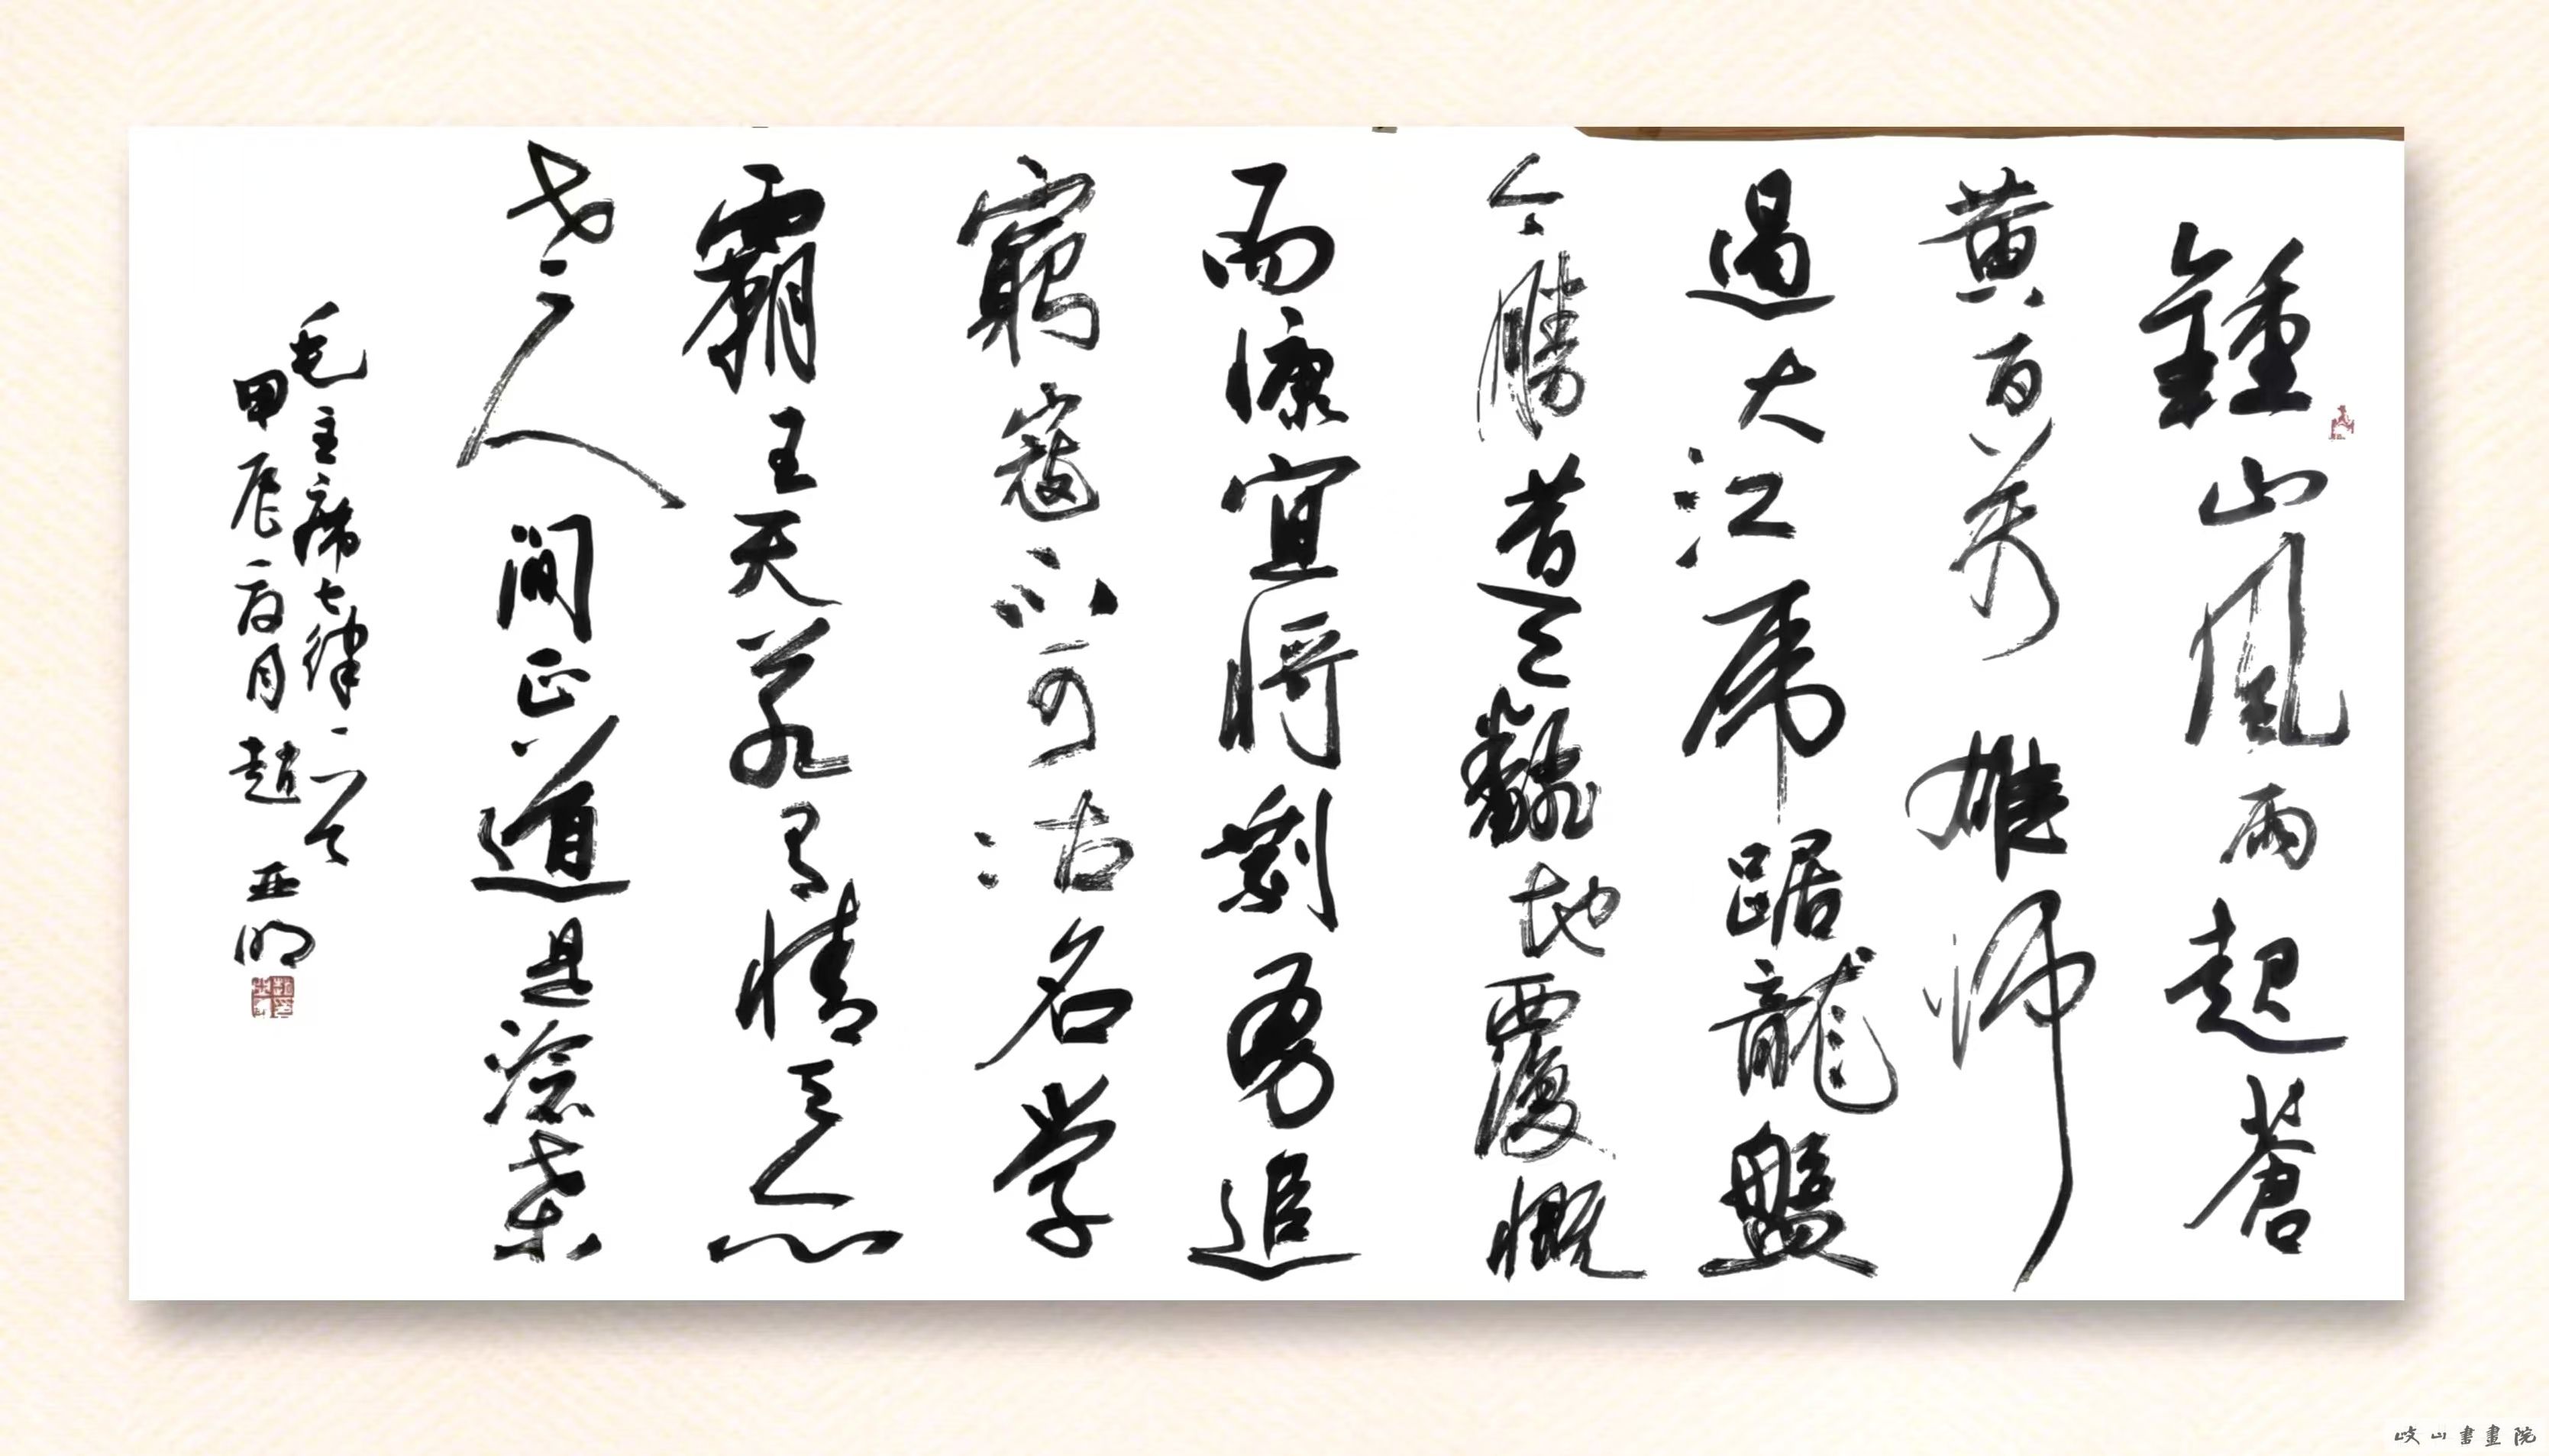 鍾山風雨起蒼
黄百萬雄師
過大江虎踞龍盤
今勝昔天翻地覆慨
而慷宜將剩勇追
窮寇不可沽名学
霸王天若有情天亦
老人間正道是滄桑
毛主席七律一首
甲辰夏月趙亚明
岐山書畫院